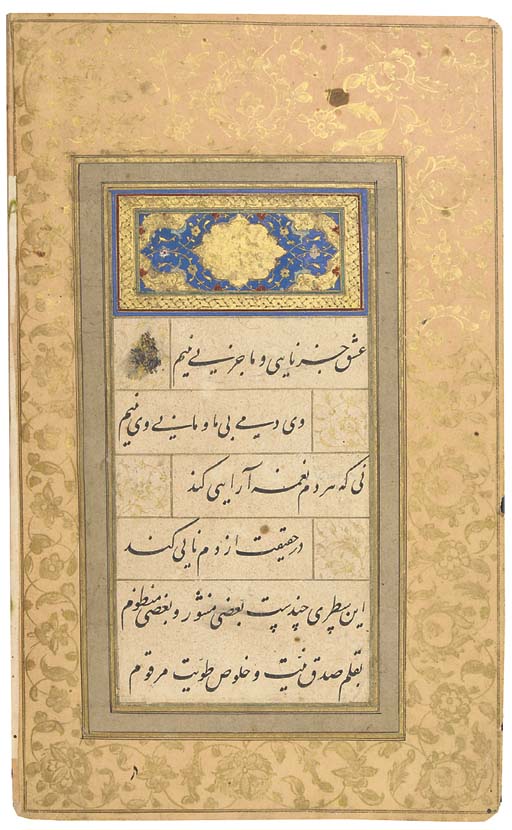 عشق جز نایی و ما جز نی نیم
وی دمی بی ما و ما بی وی نیم
نی که هر دم نغمه آرایی کند
در حقیقت از دم نایی کند
این سطری چندست بعضی منثور و بعضی منظوم
بقلم صدق نیت و خلوص طویت مرقوم